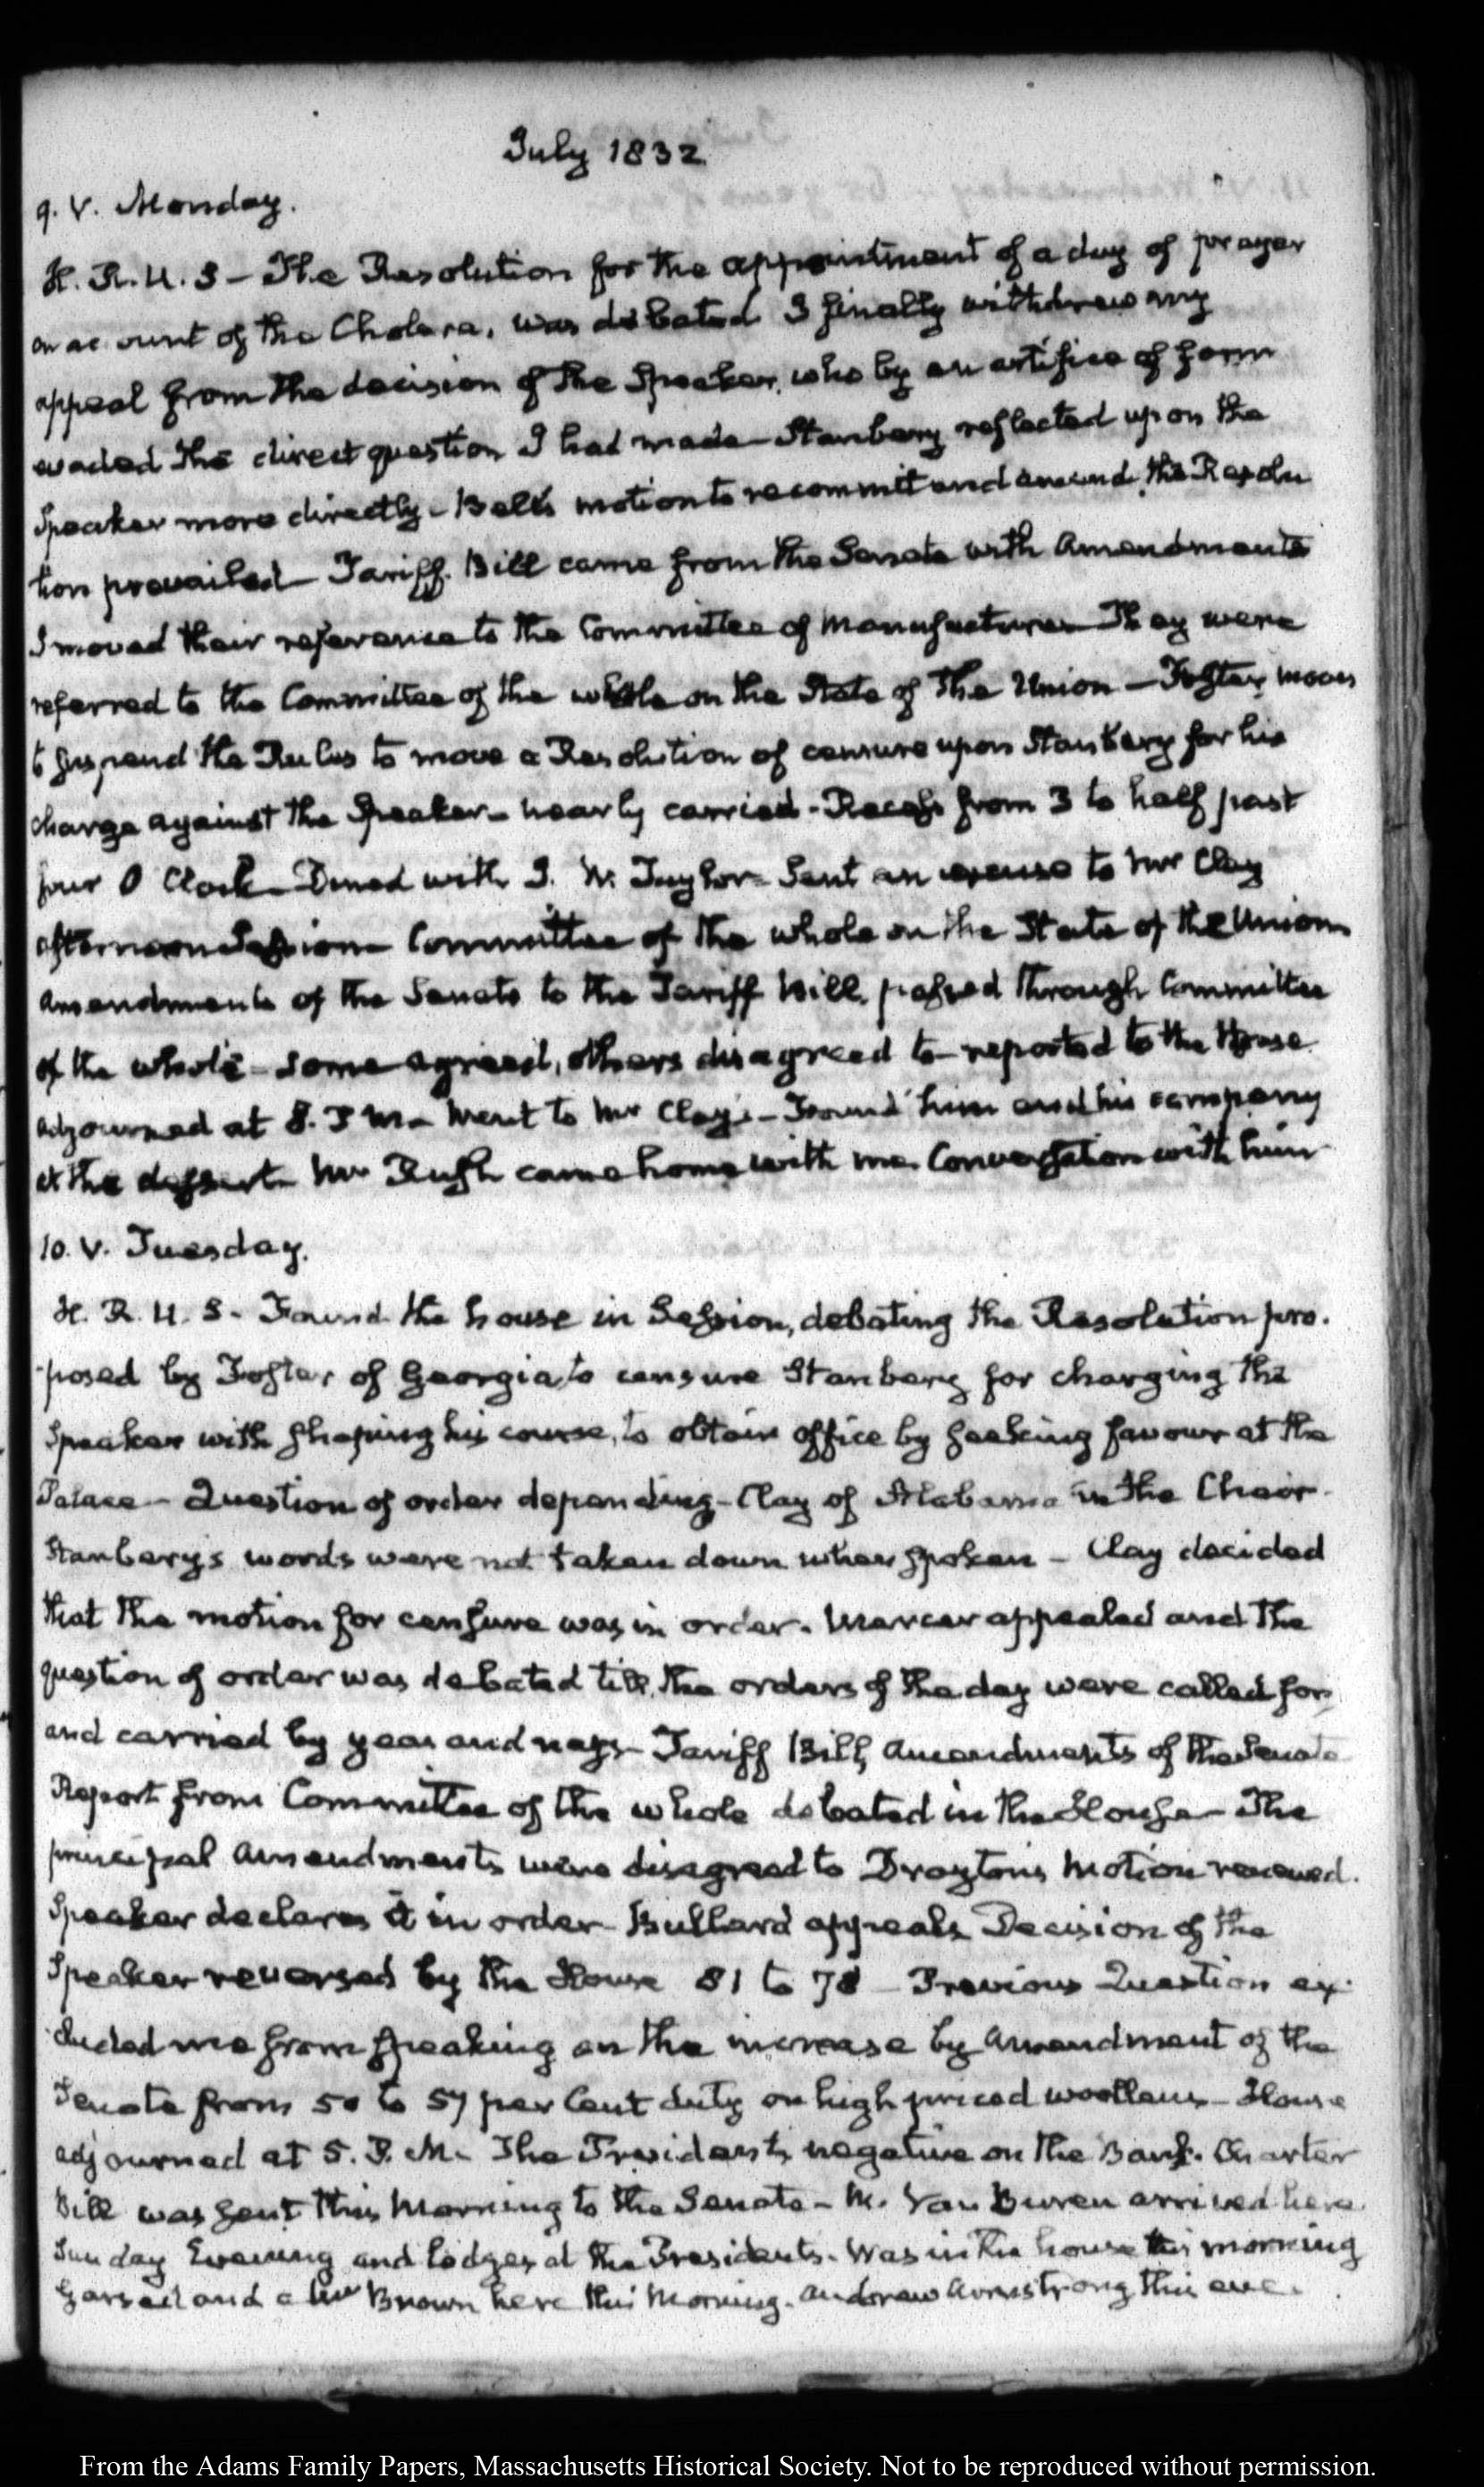 July 1832
9. V. Monday.
H. R. U. S – The Resolution for the appointment of a day of prayer
on account of the Cholera, was debated I finally withdrew my
appeal from the decision of the Speaker, who by an artifice of form
evaded the direct question I had made – Stanbery reflected upon the
Speaker more directly – Bell's motion to recommit and amend the Resolu
tion prevailed – Tariff Bill came from the Senate with Amendments
I moved their reference to the Committee of Manufactures – They were
referred to the Committee of the whole on the State of the Union – Foster moves
to suspend the Rules to move a Resolution of censure upon Stanbery for his
charge against the Speaker – nearly carried – Recess from 3 to half past
four O Clock – Dined with J. W. Taylor – Sent an excuse to Mr Clay
afternoon Session – Committee of the whole on the State of the Union
Amendments of the Senate to the Tariff Bill, passed through Committee
of the whole – some agreed, others disagreed to – reported to the House
adjourned at 8. P M – Went to Mr Clay's – Found him and his company
at the dessert – Mr Rush came home with me. Conversation with him
10. V. Tuesday.
H. R. U. S – Found the house in Session, debating the Resolution pro-
posed by Foster of Georgia, to censure Stanbery for charging the
Speaker with shaping his course, to obtain office by seeking favour at the
Palace – Question of order depending – Clay of Alabama in the Chair.
Stanbery's words were not taken down when spoken – Clay decided
that the motion for censure was in order. Mercer appealed and the
question of order was debated till the orders of the day were called for,
and carried by yeas and nays – Tariff Bill, Amendments of the Senate
Report from Committee of the whole debated in the House – The
principal Amendments were disagreed to Drayton's Motion renewed.
Speaker declares it in order – Bullard appeals Decision of the
Speaker reversed by the House 81 to 78 – Previous Question ex-
cluded me from speaking on the increase by Amendment of the
Senate from 50 to 57 per Cent duty on high priced woollens – House
adjourned at 5. P. M. The President's negative on the Bank Charter
Bill was sent this Morning to the Senate – M. Van Buren arrived here
Sunday Evening and lodges at the Presidents. Was in the house this morning
and a Mr Brown here this Morning. Andrew Armstrong this eve.
From the Adams Family Papers, Massachusetts Historical Society. Not to be reproduced without permission.